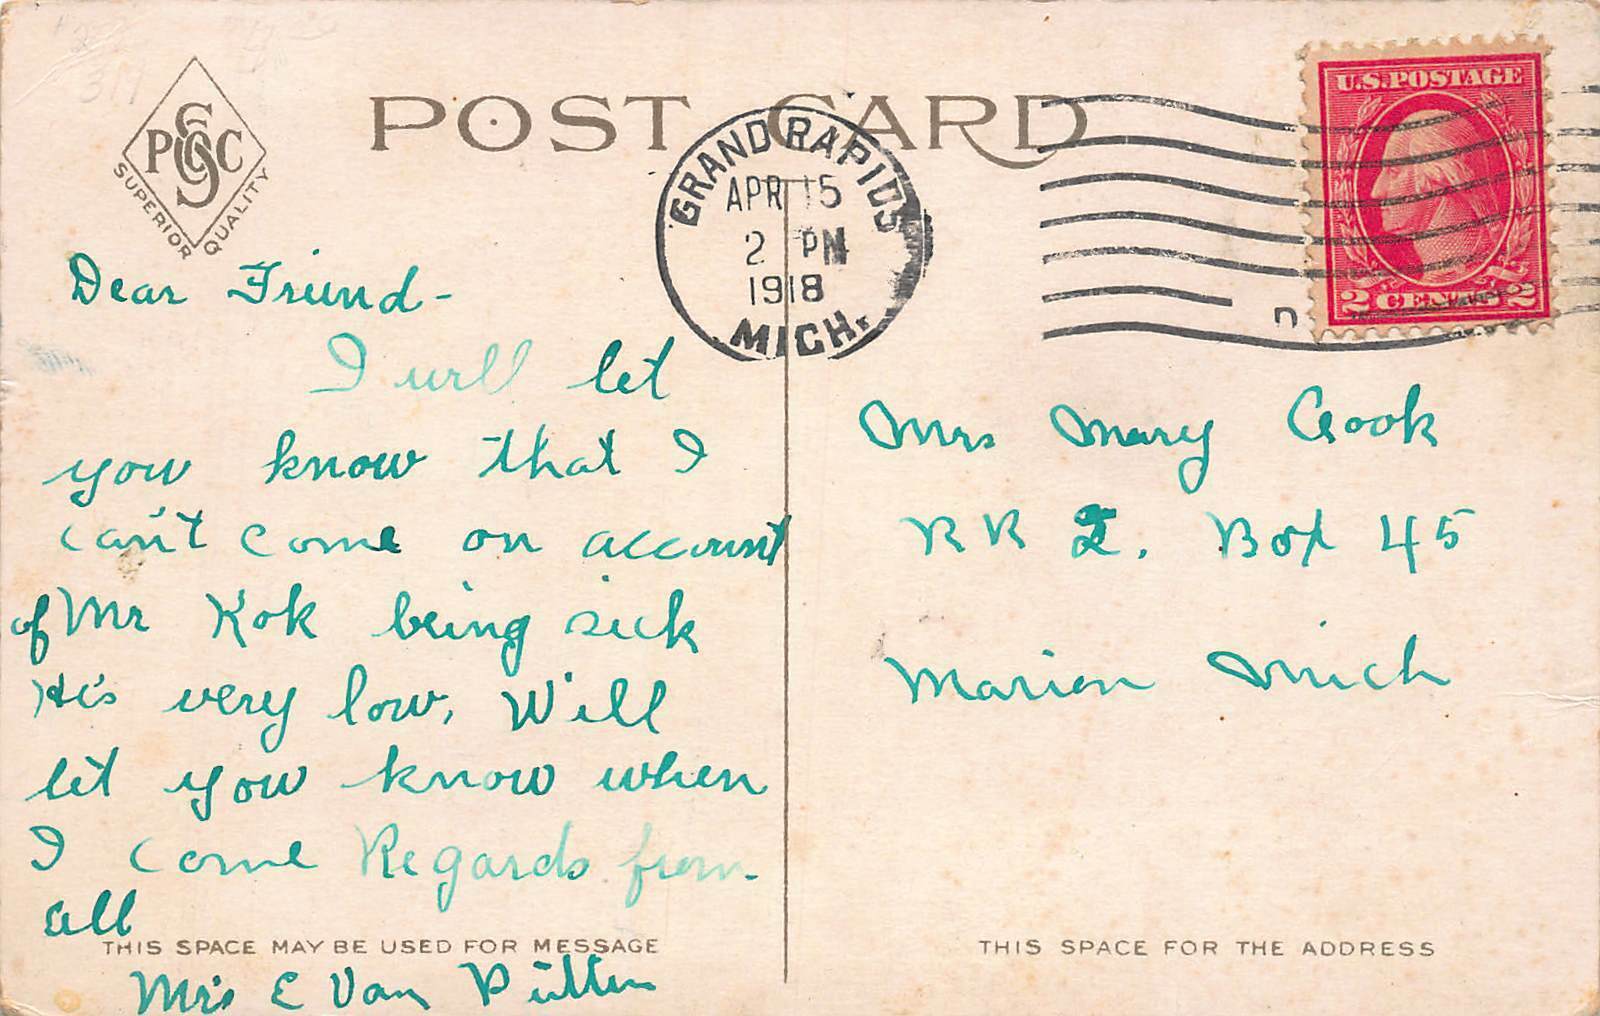 PSC
SUPERIOR QUALITY
POST CARD
GRAND RAPIDS
APR 15
2 PM
1918
MICH.
U.S. POSTAGE
2 CENTS 2
Dear Friend-
I will let
you know that I
can't come on account
of Mr Kok being sick
He's very low, Will
let you know when
I come Regards from
all
Mrs E Van Putten
THIS SPACE MAY BE USED FOR MESSAGE
Mrs Mary Cook
RR 2. Box 45
Marion Mich
THIS SPACE FOR THE ADDRESS